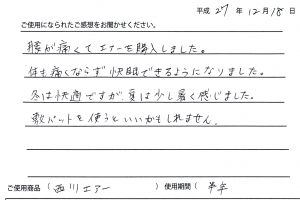 平成 27 年 12 月 18 日
ご使用になられたご感想をお聞かせください。
腰が痛くてエアーを購入しました。
体も痛くならず快眠できるようになりました。
冬は快適ですが、夏は少し暑く感じました。
敷パットを使うといいかもしれません。
ご使用商品 ( 西川エアー ) 使用期間 ( 半年